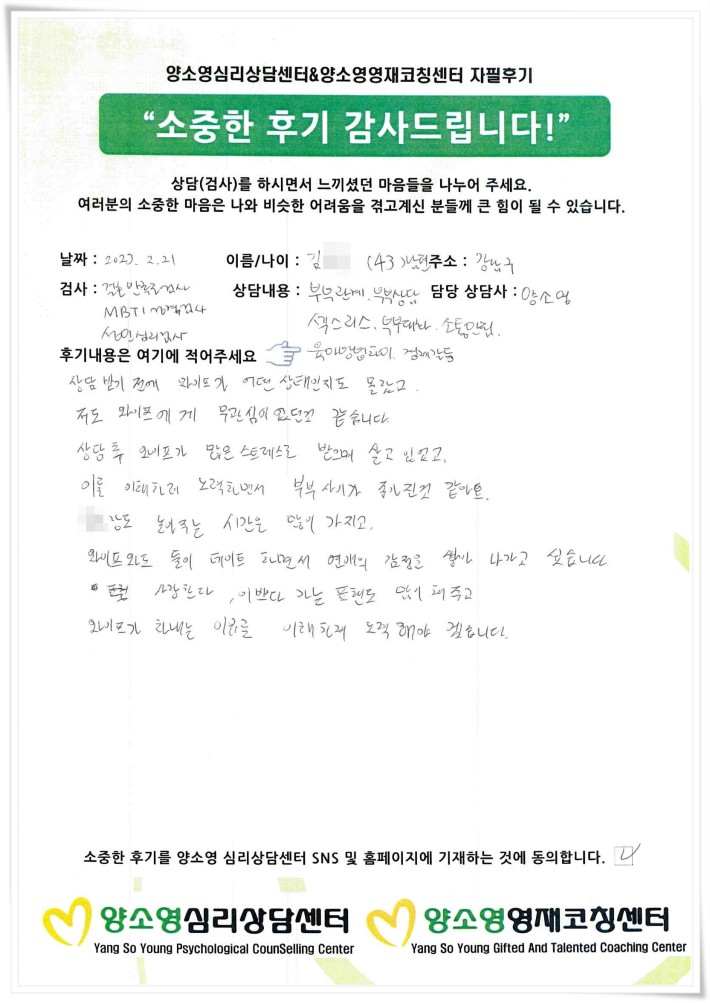 양소영심리상담센터&양소영영재코칭센터 자필후기
“소중한 후기 감사드립니다!”
상담(검사)를 하시면서 느끼셨던 마음들을 나누어 주세요.
여러분의 소중한 마음은 나와 비슷한 어려움을 겪고계신 분들께 큰 힘이 될 수 있습니다.
날짜 : 2023. 2. 21 이름/나이 : 김 (43) 남편 주소 : 강남구
검사 : 결혼만족도검사 상담내용 : 부부관계. 부부상담 담당 상담사 : 양소영
MBTI 성격검사 섹스리스. 부부대화. 소통단절.
성인심리검사
후기내용은 여기에 적어주세요 육아방법차이. 경제갈등
상담 받기 전에 와이프가 어떤 상태인지도 몰랐고.
저도 와이프에게 무관심이 있던것 같습니다.
상담 후 와이프가 많은 스트레스를 받으며 살고 있었고.
이를 이해하려 노력하면서 부부사이가 좋아진것 같아요.
랑도 놀아주는 시간은 많이 가지고.
와이프와도 둘이 데이트 하면서 연애의 감정을 쌓아 나가고 싶습니다
사랑한다, 이쁘다 라는 표현도 많이 해주고
와이프가 화내는 이유를 이해하려 노력해야 겠습니다.
소중한 후기를 양소영 심리상담센터 SNS 및 홈페이지에 기재하는 것에 동의합니다.
양소영심리상담센터 양소영영재코칭센터
Yang So Young Psychological CounSelling Center Yang So Young Gifted And Talented Coaching Center